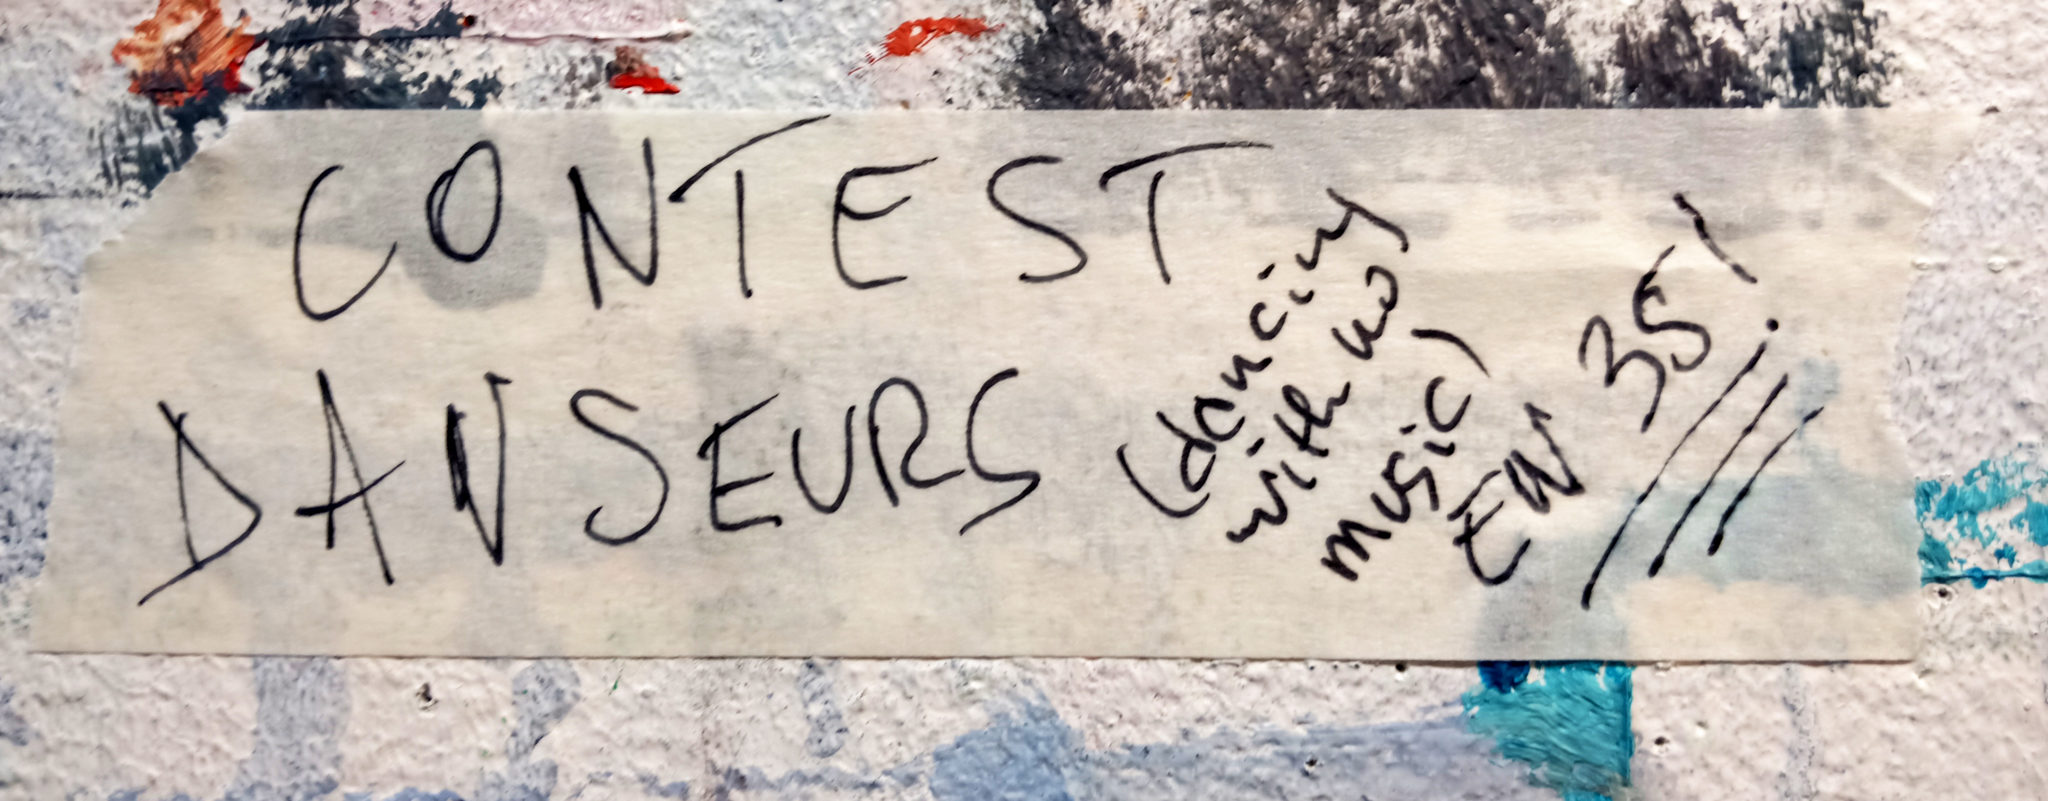 CONTEST
DANSEURS
(dancing
with no
music)
EN 35!